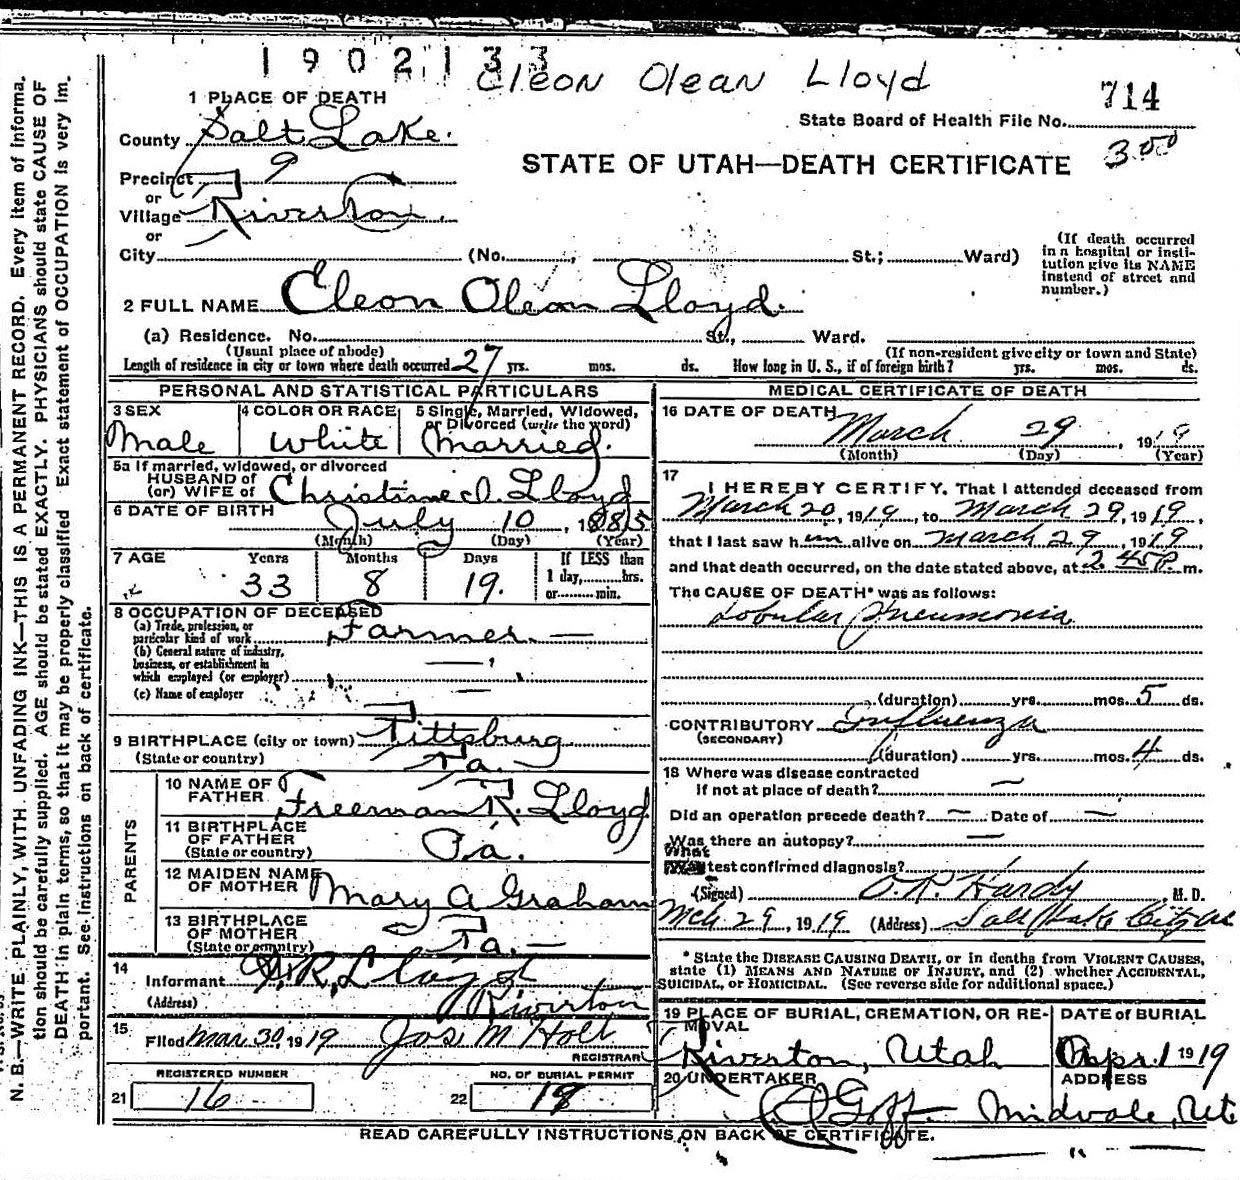 1902133
Cleon Olean Lloyd
714
1 PLACE OF DEATH
State Board of Health File No.
County Salt Lake.
STATE OF UTAH—DEATH CERTIFICATE
3.00
Precinct 9
or
Village Riverton
or
City (No. , St.; Ward)
(If death occurred
in a hospital or insti-
tution give its NAME
instead of street and
number.)
2 FULL NAME Cleon Olean Lloyd.
(a) Residence. No. St., Ward.
(Usual place of abode) (If non-resident give city or town and State)
Length of residence in city or town where death occurred 27 yrs. mos. ds. How long in U. S., if of foreign birth? yrs. mos. ds.
PERSONAL AND STATISTICAL PARTICULARS
3 SEX
Male
4 COLOR OR RACE
White
5 Single, Married, Widowed,
or Divorced (write the word)
Married.
5a If married, widowed, or divorced
HUSBAND of
(or) WIFE of Christine D. Lloyd
6 DATE OF BIRTH July 10, 1885
(Month) (Day) (Year)
7 AGE Years Months Days
33 8 19.
If LESS than
1 day, hrs.
or min.
8 OCCUPATION OF DECEASED
(a) Trade, profession, or
particular kind of work Farmer —
(b) General nature of industry,
business, or establishment in
which employed (or employer)
(c) Name of employer
9 BIRTHPLACE (city or town) Pittsburg
(State or country) Pa.
PARENTS
10 NAME OF
FATHER Freeman R. Lloyd
11 BIRTHPLACE
OF FATHER
(State or country) Pa.
12 MAIDEN NAME
OF MOTHER Mary A Graham
13 BIRTHPLACE
OF MOTHER
(State or country) Pa.—
14
Informant R. Lloyd
(Address) Riverton
15
Filed Mar. 30, 1919 Jos. M Holt
REGISTRAR
REGISTERED NUMBER NO. OF BURIAL PERMIT
21 16 22 18
MEDICAL CERTIFICATE OF DEATH
16 DATE OF DEATH
March 29, 1919
(Month) (Day) (Year)
17
I HEREBY CERTIFY, That I attended deceased from
March 20, 1919, to March 29, 1919,
that I last saw him alive on March 29, 1919,
and that death occurred, on the date stated above, at 2.45 P. m.
The CAUSE OF DEATH* was as follows:
Lobular Pneumonia
(duration) yrs. mos. 5 ds.
CONTRIBUTORY Influenza
(SECONDARY)
(duration) yrs. mos. 4 ds.
18 Where was disease contracted
if not at place of death? —
Did an operation precede death? — Date of —
Was there an autopsy? —
What test confirmed diagnosis?
(Signed) C. R. Hardy M. D.
Mch 29, 1919 (Address) Salt Lake City Ut
* State the DISEASE CAUSING DEATH, or in deaths from VIOLENT CAUSES,
state (1) MEANS AND NATURE OF INJURY, and (2) whether ACCIDENTAL,
SUICIDAL, or HOMICIDAL. (See reverse side for additional space.)
19 PLACE OF BURIAL, CREMATION, OR RE-
MOVAL
Riverton, Utah
DATE of BURIAL
Apr. 1 1919
20 UNDERTAKER
Goff
ADDRESS
Midvale, Ut
READ CAREFULLY INSTRUCTIONS ON BACK OF CERTIFICATE.
N. B.—WRITE PLAINLY, WITH UNFADING INK—THIS IS A PERMANENT RECORD. Every item of informa-
tion should be carefully supplied. AGE should be stated EXACTLY. PHYSICIANS should state CAUSE OF
DEATH in plain terms, so that it may be properly classified. Exact statement of OCCUPATION is very im-
portant. See instructions on back of certificate.